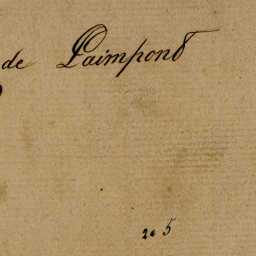 de Paimpont
205